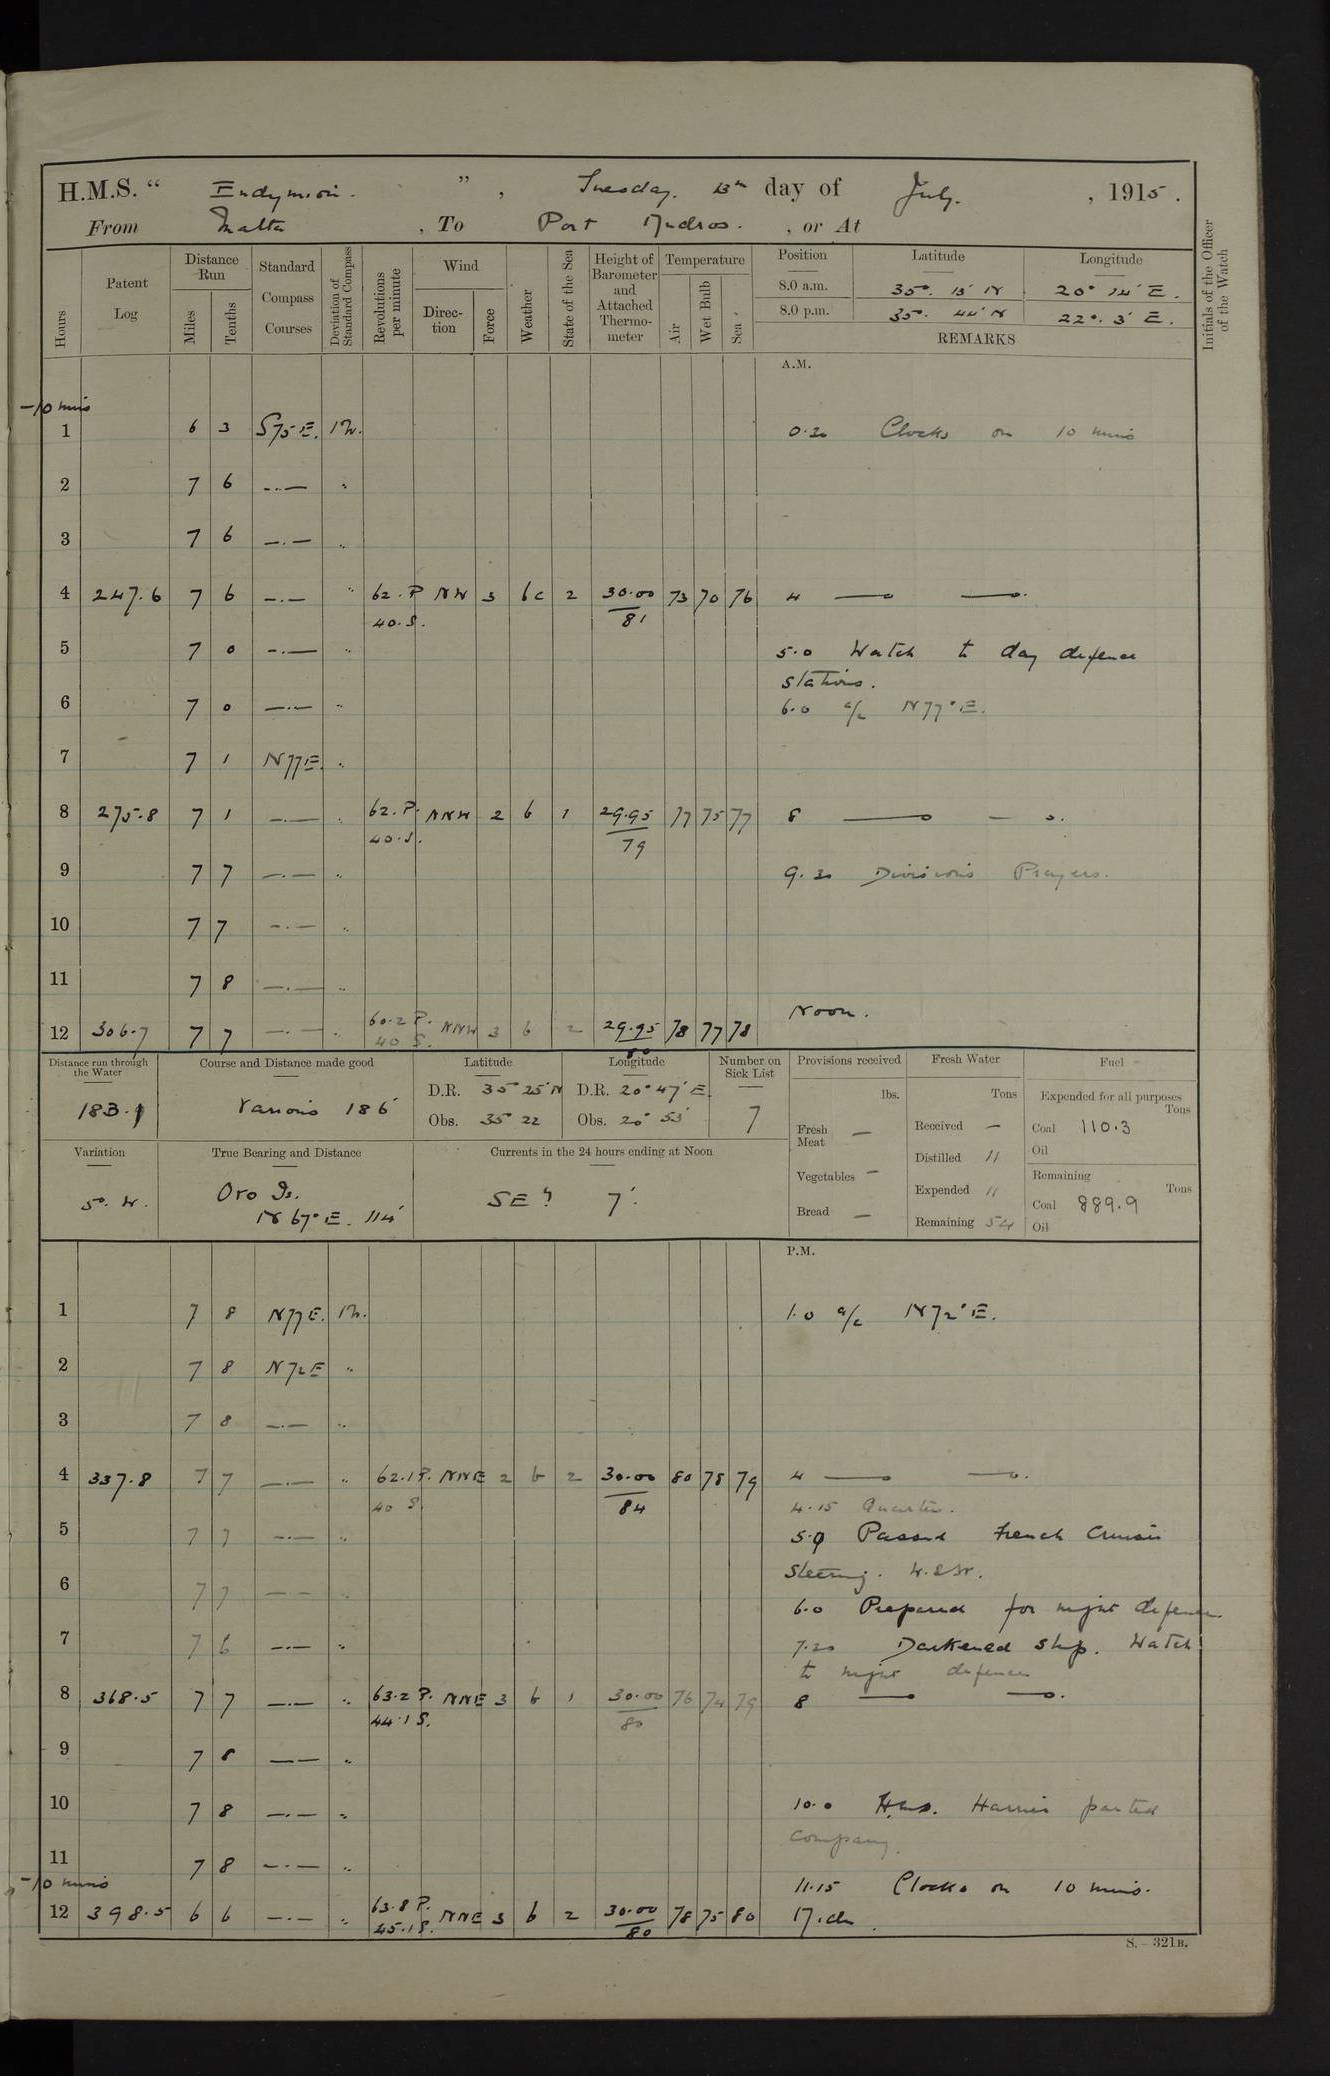 H.M.S. " Endymion. ", Tuesday. 13th day of July. , 1915.
From Malta , To Port Mudros. , or At
Hours Patent Log Distance Run Miles Tenths Standard Compass Courses Deviation of Standard Compass Revolutions per minute Wind Direction Force Weather State of the Sea Height of Barometer and Attached Thermometer Temperature Air Wet Bulb Sea Position Latitude Longitude Initials of the Officer of the Watch
8.0 a.m. 35°. 13' N 20° 14' E.
8.0 p.m. 35°. 44' N 22°. 3' E.
REMARKS
A.M.
-10 mins
1 6 3 S75E. 1W. 0.20 Clocks on 10 mins
2 7 6 —.— "
3 7 6 —.— "
4 247.6 7 6 —.— " 62.P NW 3 bc 2 30.00 73 70 76 4 —— ——.
40.S. 81
5 7 0 —.— " 5.0 Watch to day defence
stations.
6 7 0 —.— " 6.0 a/c N77°E.
7 7 1 N77E. "
8 275.8 7 1 —.— " 62.P. NNW 2 b 1 29.95 77 75 77 8 —— — .
40.S. 79
9 7 7 —.— " 9.30 Divisions Prayers.
10 7 7 —.— "
11 7 8 —.— "
Noon.
12 306.7 7 7 —.— " 60.2 P. NNW 3 b 2 29.95 78 77 78
40 S. 80
Distance run through the Water Course and Distance made good Latitude Longitude Number on Sick List Provisions received Fresh Water Fuel
183.9 Various 186' D.R. 35° 25' N D.R. 20° 47' E. 7
Obs. 35° 22 Obs. 20° 53'
lbs. Tons Expended for all purposes Tons
Fresh Meat — Received — Coal 110.3
Oil
Variation True Bearing and Distance Currents in the 24 hours ending at Noon
Vegetables — Distilled 11 Remaining Tons
5°. W. Oro Is. SE'ly 7'.
N 67° E. 114'
Expended 11 Coal 889.9
Bread — Remaining 54 Oil
P.M.
1 7 8 N77E. 1W. 1.0 a/c N72°E.
2 7 8 N72E "
3 7 8 —.— "
4 337.8 7 7 —.— " 62.1P. NNE 2 b 2 30.00 80 78 79 4 —— ——.
40 S. 84 4.15 Quarters.
5 7 7 —.— " 5.0 Passed French Cruiser
Steering. W.SW.
6 7 7 —.— " 6.0 Prepared for night defence
7 7 6 —.— " 7.20 Darkened ship. Watch
to night defence
8 368.5 7 7 —.— " 63.2 P. NNE 3 b 1 30.00 76 74 79 8 —— ——.
44.1 S. 80
9 7 8 —.— "
10 7 8 —.— " 10.0 H.M.S. Harrier parted
company.
11 7 8 —.— "
-10 mins 11.15 Clocks on 10 mins.
12 398.5 6 6 —.— " 63.8 P. NNE 3 b 2 30.00 78 75 80
45.1 S. 80
S.—321B.